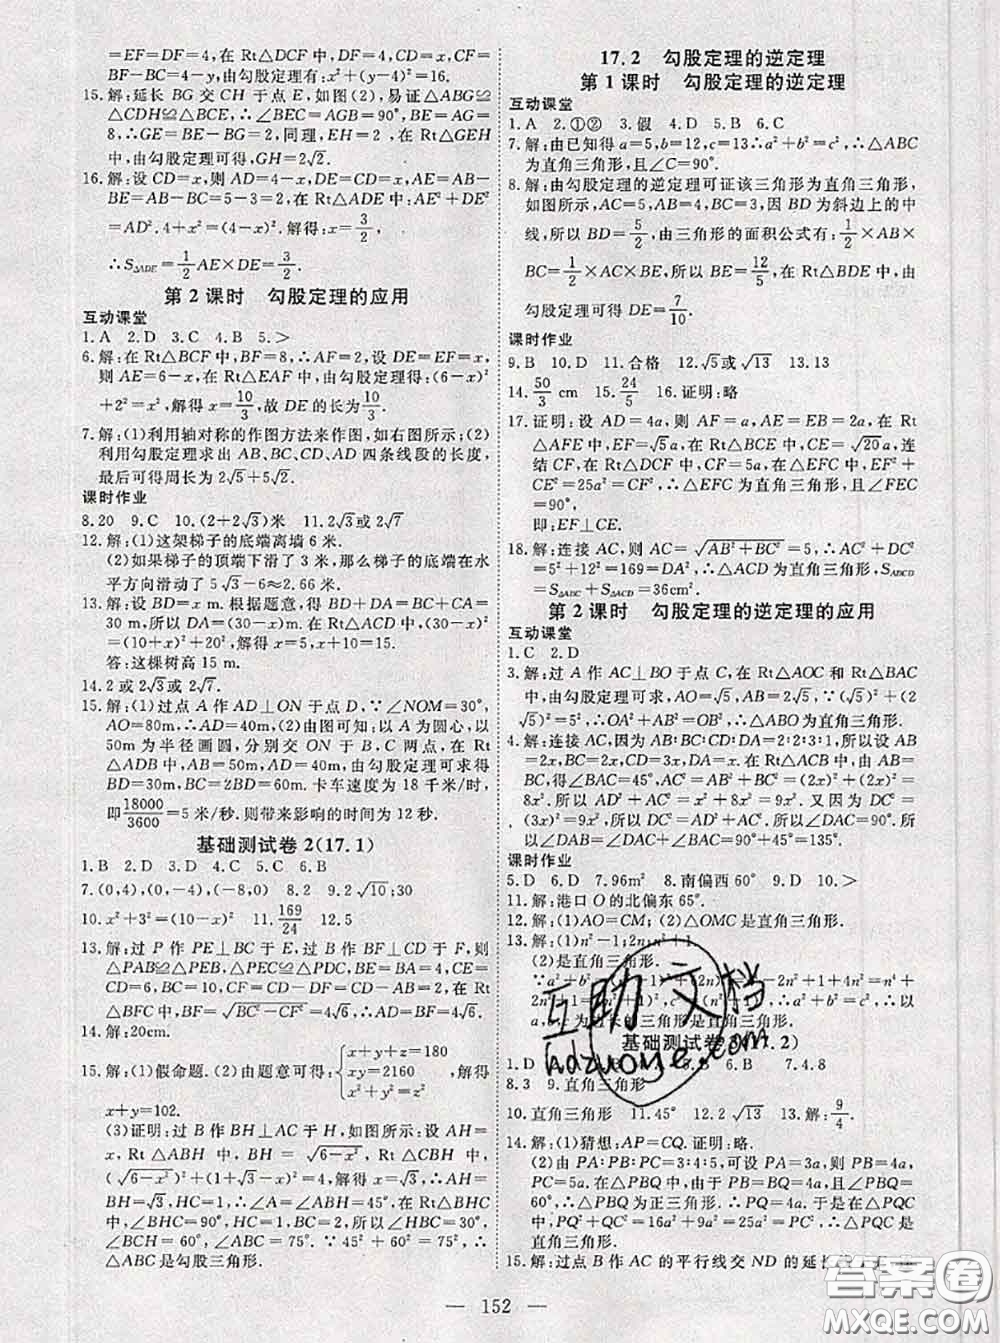 =EF=DF=4,在 Rt△DCF 中,DF=4,CD=x,CF=
BC-BF=4-y,由勾股定理有:x²+(4-y)²=16.
15.解:延长 BG 交 CH 于点 E,如图,易证△ABG≌
△CDH≌△BCE,∴∠BEC=AGB=90°,BE=AG=
8,∴GE=BE-BG=2,同理,EH=2,在 Rt△GEH
中,由勾股定理可得,GH=2√2.
16.解:设 CD=x,则 AD=4-x,DE=x,AE=AB-
BE=AB-BC=5-3=2,在 Rt△ADE 中:AE²+DE²
=AD².4+x²=(4-x)².解得:x=3/2,
∴S△ADE=1/2 AE×DE=3/2.
第 2 课时 勾股定理的应用
互动课堂
1.A 2.D 3.C 4.B 5.>
6.解:在 Rt△BCF 中,BF=8,∴AF=2,设 DE=EF=x,
则 AE=6-x,在 Rt△EAF 中,由勾股定理得:(6-x)²
+2²=x²,解得 x=10/3,故 DE 的长为10/3.
7.解:(1)利用轴对称的作图方法来作图,如右图所示;(2)
利用勾股定理求出 AB,BC,CD,AD 四条线段的长度,
最后可得周长为 2√5+5√2.
课时作业
8.20 9.C 10.(2+2√3)米 11.2√3或 2√7
12.解:(1)这架梯子的底端离墙 6 米.
(2)如果梯子的顶端下滑了 3 米,那么梯子的底端在水
平方向滑动了 5√3-6≈2.66 米.
13.解:设 BD=x m.根据题意,得 BD+DA=BC+CA=
30 m,所以 DA=(30-x)m.在 Rt△ACD 中,(30-x)²
=(10+x)²+20²,解得 x=5,x+10=15.
答:这棵树高 15 m.
14.2 或 2√3或 2√7.
15.解:(1)过点 A 作 AD⊥ON 于点 D,∵∠NOM=30°,
AO=80m,∴AD=40m,(2)由图可知:以 A 为圆心,以
50m 为半径画圆,分别交 ON 于 B,C 两点,在 Rt
△ADB 中,AB=50m,AD=40m,由勾股定理可求得
BD=30m,BC=2BD=60m.卡车速度为 18 千米/时,
即18000/3600=5 米/秒.则带来影响的时间为 12 秒.
基础测试卷 2(17.1)
1.B 2.D 3.D 4.C 5.D 6.C
7.(0,4),(0,-4),(-8,0) 8.2 9.2√10;30
10.x²+3²=(10-x)² 11.169/24 12.5
13.解:过 P 作 PE⊥BC 于 E,过 B 作 BF⊥CD 于 F,则
△PAB≌△PEB,△PEC≌△PDC,BE=BA=4,CE=
CD=6,BC=10,DF=BA=4,CF=CD-DF=2,在 Rt
△BFC 中,BF=√BC²-CF²=4√6,∴AD=BF=4√6.
14.解:20cm.
15.解:(1)假命题.(2)由题意可得:{x+y+z=180 xy=2160 x²+y²=z² ,解得:
x+y=102.
(3)证明:过 B 作 BH⊥AC 于 H,如图所示:设 AH=
x, Rt △ABH 中, BH=√6-x², Rt △CBH 中,
(√6-x²)²+(1+√3-x)²=4,解得:x=√3,所以 AH=
BH=√3,HC=1,∴∠A=∠ABH=45°,在 Rt△BHC
中,∠BHC=90°,HC=1,BC=2,所以∠HBC=30°,
∠BCH = 60°, ∠B = 75°. ∵ 45² + 60² = 75², ∴
△ABC 是勾股三角形.
17.2 勾股定理的逆定理
第 1 课时 勾股定理的逆定理
互动课堂
1.A 2.①② 3.假 4.D 5.B 6.C
7.解:由已知得 a=5,b=12,c=13∴a²+b²=c²,∴△ABC
为直角三角形,且∠C=90°.
8.解:由勾股定理的逆定理可证该三角形为直角三角形,
如图所示,AC=5,AB=4,BC=3,因 BD 为斜边上的中
线,所以 BD=5/2,由三角形的面积公式有:1/2×AB×
BC=1/2×AC×BE,所以 BE=12/5,在 Rt△BDE 中,由
勾股定理可得 DE=7/10.
课时作业
9.B 10.D 11.合格 12.√5或√13 13.13
14.50/3 cm 15.24/5 16.证明:略
17.证明:设 AD=4a,则 AF=a,AE=EB=2a,在 Rt
△AFE 中,EF=√5a,在 Rt△BCE 中,CE=√20a,连
结 CF,在 Rt△CDF 中,CF=5a,在△EFC 中,EF²+
CE²=25a²=CF²,∴△EFC 为直角三角形,且∠FEC
=90°,
即:EF⊥CE.
18.解:连接 AC,则 AC=√AB²+BC²=5,∵AC²+CD²
=5²+12²=169=DA²,∴△ACD 为直角三角形,S▱ABCD
=S△ABC+S△ACD=36cm².
第 2 课时 勾股定理的逆定理的应用
互动课堂
1.C 2.D
3.解:过 A 作 AC⊥BO 于点 C,在 Rt△AOC 和 Rt△BAC
中,由勾股定理可求,AO=√5,AB=2√5,∵(√5)²+(2
√5)²=5²,∴OA²+AB²=OB²,∴△ABO为直角三角形.
4.解:连接 AC,因为 AB:BC:CD:DA=2:2:3:1,所以设 AB
=2x,BC=2x,CD=3x,DA=x.在 Rt△ACB 中,AB=
BC,得∠BAC=45°.AC²=AB²+BC²=(2x)²+(2x)²=
8x²,所以 AC²+AD²=8x²+x²=9x².又因为 DC²=
(3x)²=9x²,所以 AC²+AD²=DC²,得∠DAC=90°.所
以∠DAB=∠DAC+∠BAC=90°+45°=135°.
课时作业
5.D 6.D 7.96m² 8.南偏西 60° 9.D 10.>
11.解:港口 O 的北偏东 65°.
12.解:(1)AO=CM;(2)△OMC 是直角三角形.
13.解:(1)n²-1;2n;n²+1
(2)是直角三角形.
基础测试卷
8.3 9.直角三角形
10.直角三角形 11.45° 12.2√13 13.解:9/4.
14.解:(1)猜想:AP=CQ.证明:略.
(2)由 PA:PB:PC=3:4:5,可设 PA=3a,则 PB=4a,
PC=5a,在△PBQ 中,由于 PB=BQ=4a,且∠PBQ=
60°,∴△PBQ 为正三角形.∴PQ=4a.于是在△PQC
中,PQ²+QC²=16a²+9a²=25a²=PC²,∴△PQC 是
直角三角形.
15.解:过点 B 作 AC 的平行线交 ND 的延长
互助文档
hdzuoye.com
答案圈
MXQE.COM
— 152 —